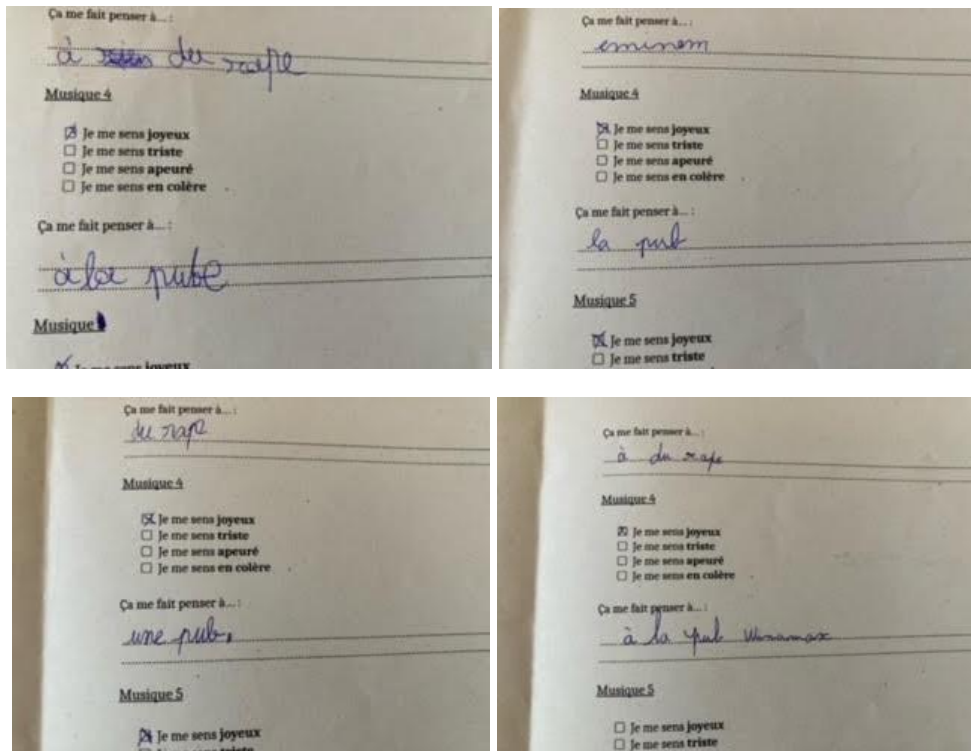 Ça me fait penser à... :
à rien du rape
Musique 4
☒ Je me sens joyeux
☐ Je me sens triste
☐ Je me sens apeuré
☐ Je me sens en colère
Ça me fait penser à... :
à la pube
Musique
Je me sens joyeux
Ça me fait penser à... :
eminem
Musique 4
☒ Je me sens joyeux
☐ Je me sens triste
☐ Je me sens apeuré
☐ Je me sens en colère
Ça me fait penser à... :
la pub
Musique 5
☒ Je me sens joyeux
☐ Je me sens triste
Ça me fait penser à... :
du rap
Musique 4
☒ Je me sens joyeux
☐ Je me sens triste
☐ Je me sens apeuré
☐ Je me sens en colère
Ça me fait penser à... :
une pub.
Musique 5
☒ Je me sens joyeux
Ça me fait penser à... :
à du rape
Musique 4
☒ Je me sens joyeux
☐ Je me sens triste
☐ Je me sens apeuré
☐ Je me sens en colère
Ça me fait penser à... :
à la pub Winamax
Musique 5
☐ Je me sens joyeux
☐ Je me sens triste